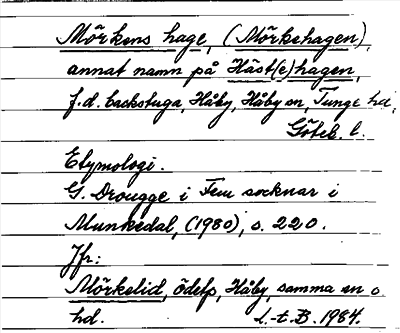 Mörkens hage, (Mörkehagen),
annat namn på Häst(e)hagen,
f.d. backstuga, Håby, Håby sn, Tunge hd,
Göteb. l.
Etymologi.
G. Drougge i Fem socknar i
Munkedal, (1980), s. 220.
Jfr:
Mörkelid, ödelp, Håby, samma sn o.
hd.
L.-t. B. 1984.